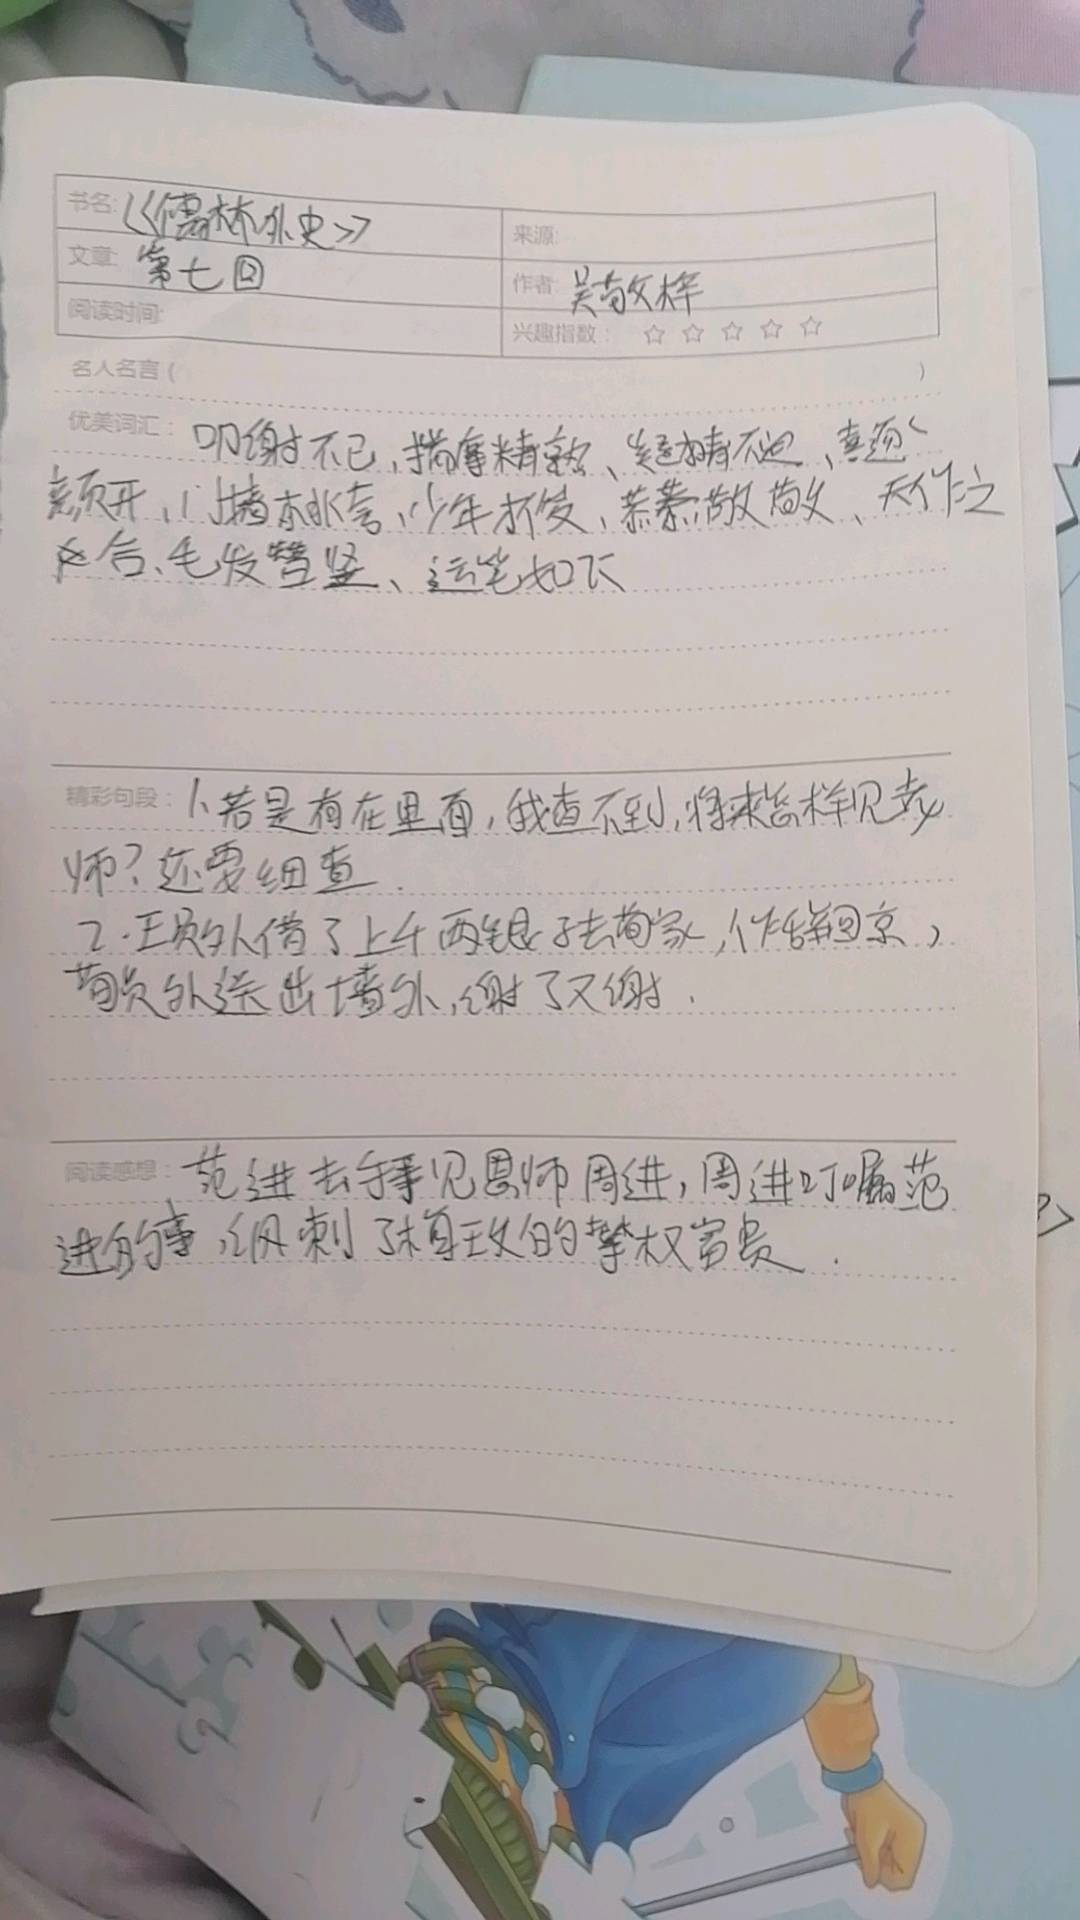 书名: 《儒林外史》
来源:
文章: 第七回
作者: 吴敬梓
阅读时间:
兴趣指数: ☆ ☆ ☆ ☆ ☆
名人名言 ( )
优美词汇: 叩谢不已,揣摩精熟、
颜开、少年才俊,恭恭敬敬、天作之
合、毛发皆竖、运笔如飞
精彩句段: 1、若是有在里面,我查不到,将来怎样见老
师?还要细查.
2.王员外借了上千两银子去荀家,作辞回京,
荀员外送出墙外,谢了又谢.
阅读感想: 范进去拜见恩师周进,周进叮嘱范
进的事,讽刺了的攀权富贵.